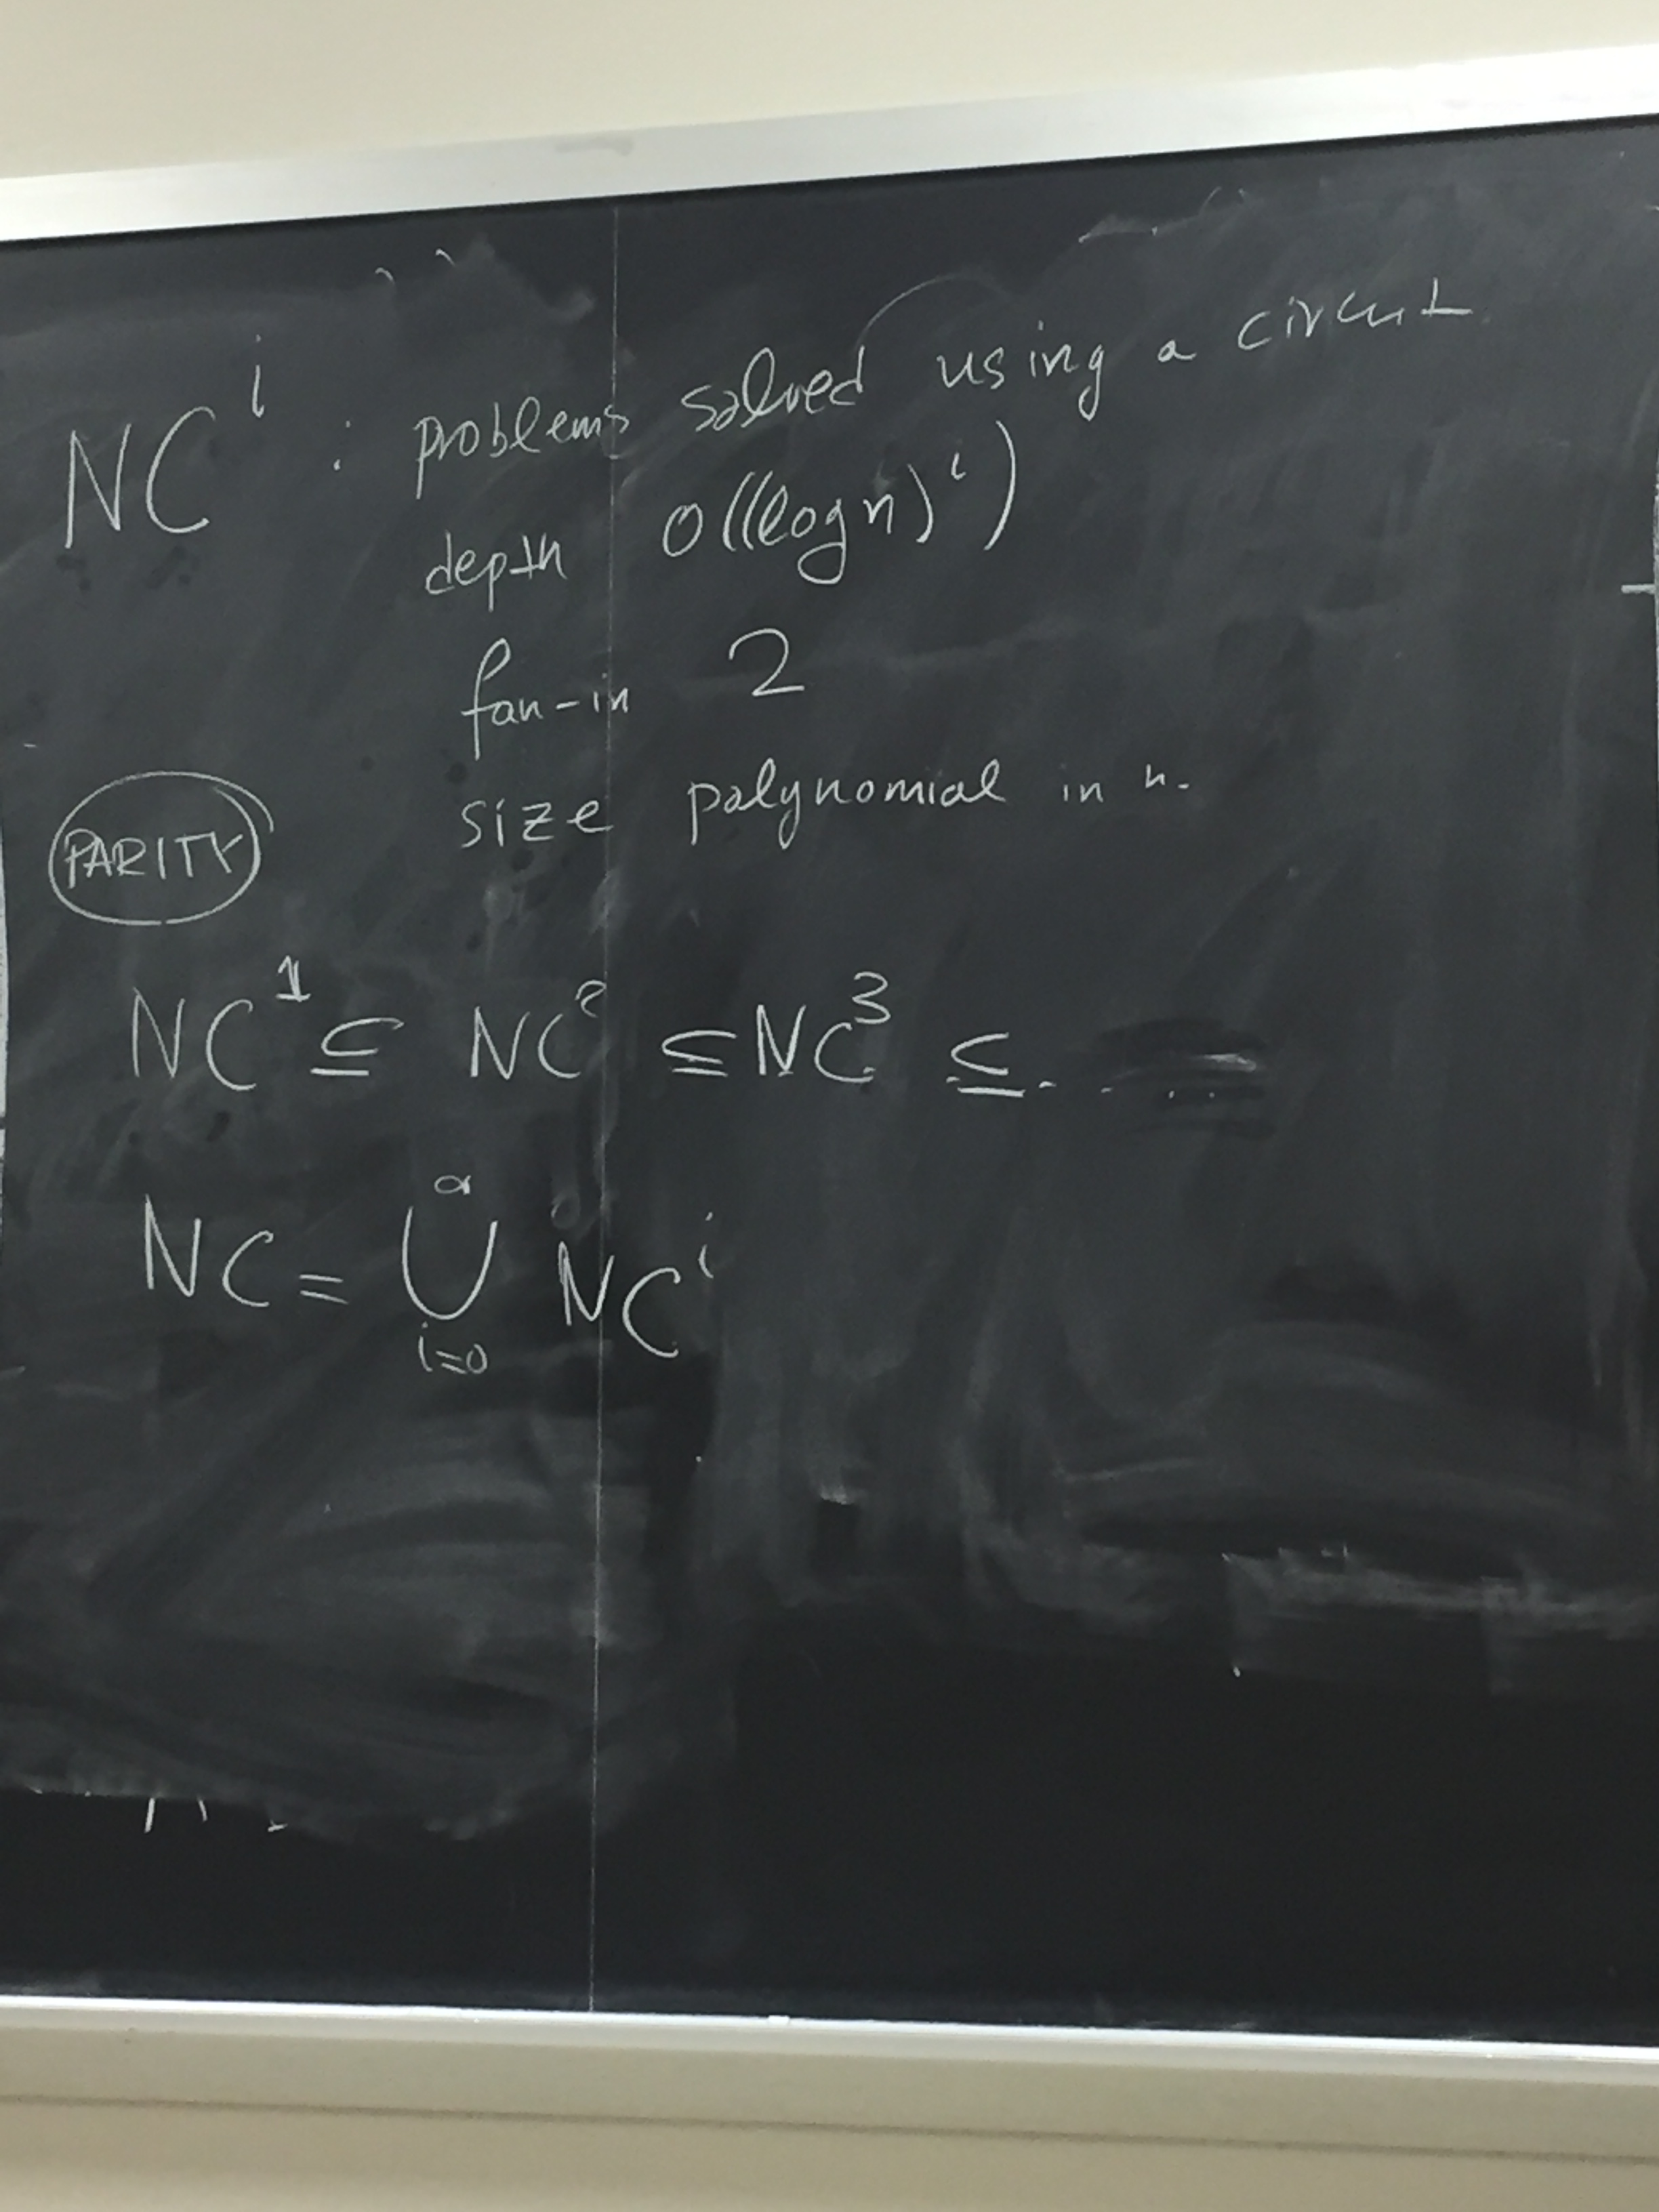 NCⁱ : problems solved using a circuit
depth O((log n)ⁱ)
fan-in 2
size polynomial in n.
PARITY
NC¹ ⊆ NC² ⊆ NC³ ⊆ . . . .
∞
NC = ⋃ NCⁱ
i=0